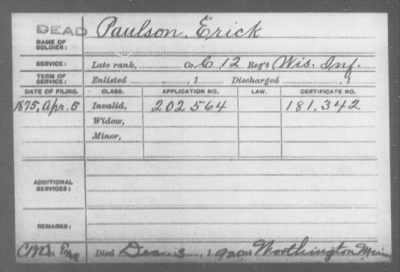 DEAD
NAME OF SOLDIER: Paulson, Erick
SERVICE: Late rank, Co. C 12 Reg't Wis. Inf.
TERM OF SERVICE: Enlisted , 1 Discharged , 1
DATE OF FILING. CLASS. APPLICATION NO. LAW. CERTIFICATE NO.
1875, Apr. 5 Invalid, 202.564 181.342
Widow,
Minor,
ADDITIONAL SERVICES:
REMARKS:
Died Dec 3, 1920 Worthington Minn